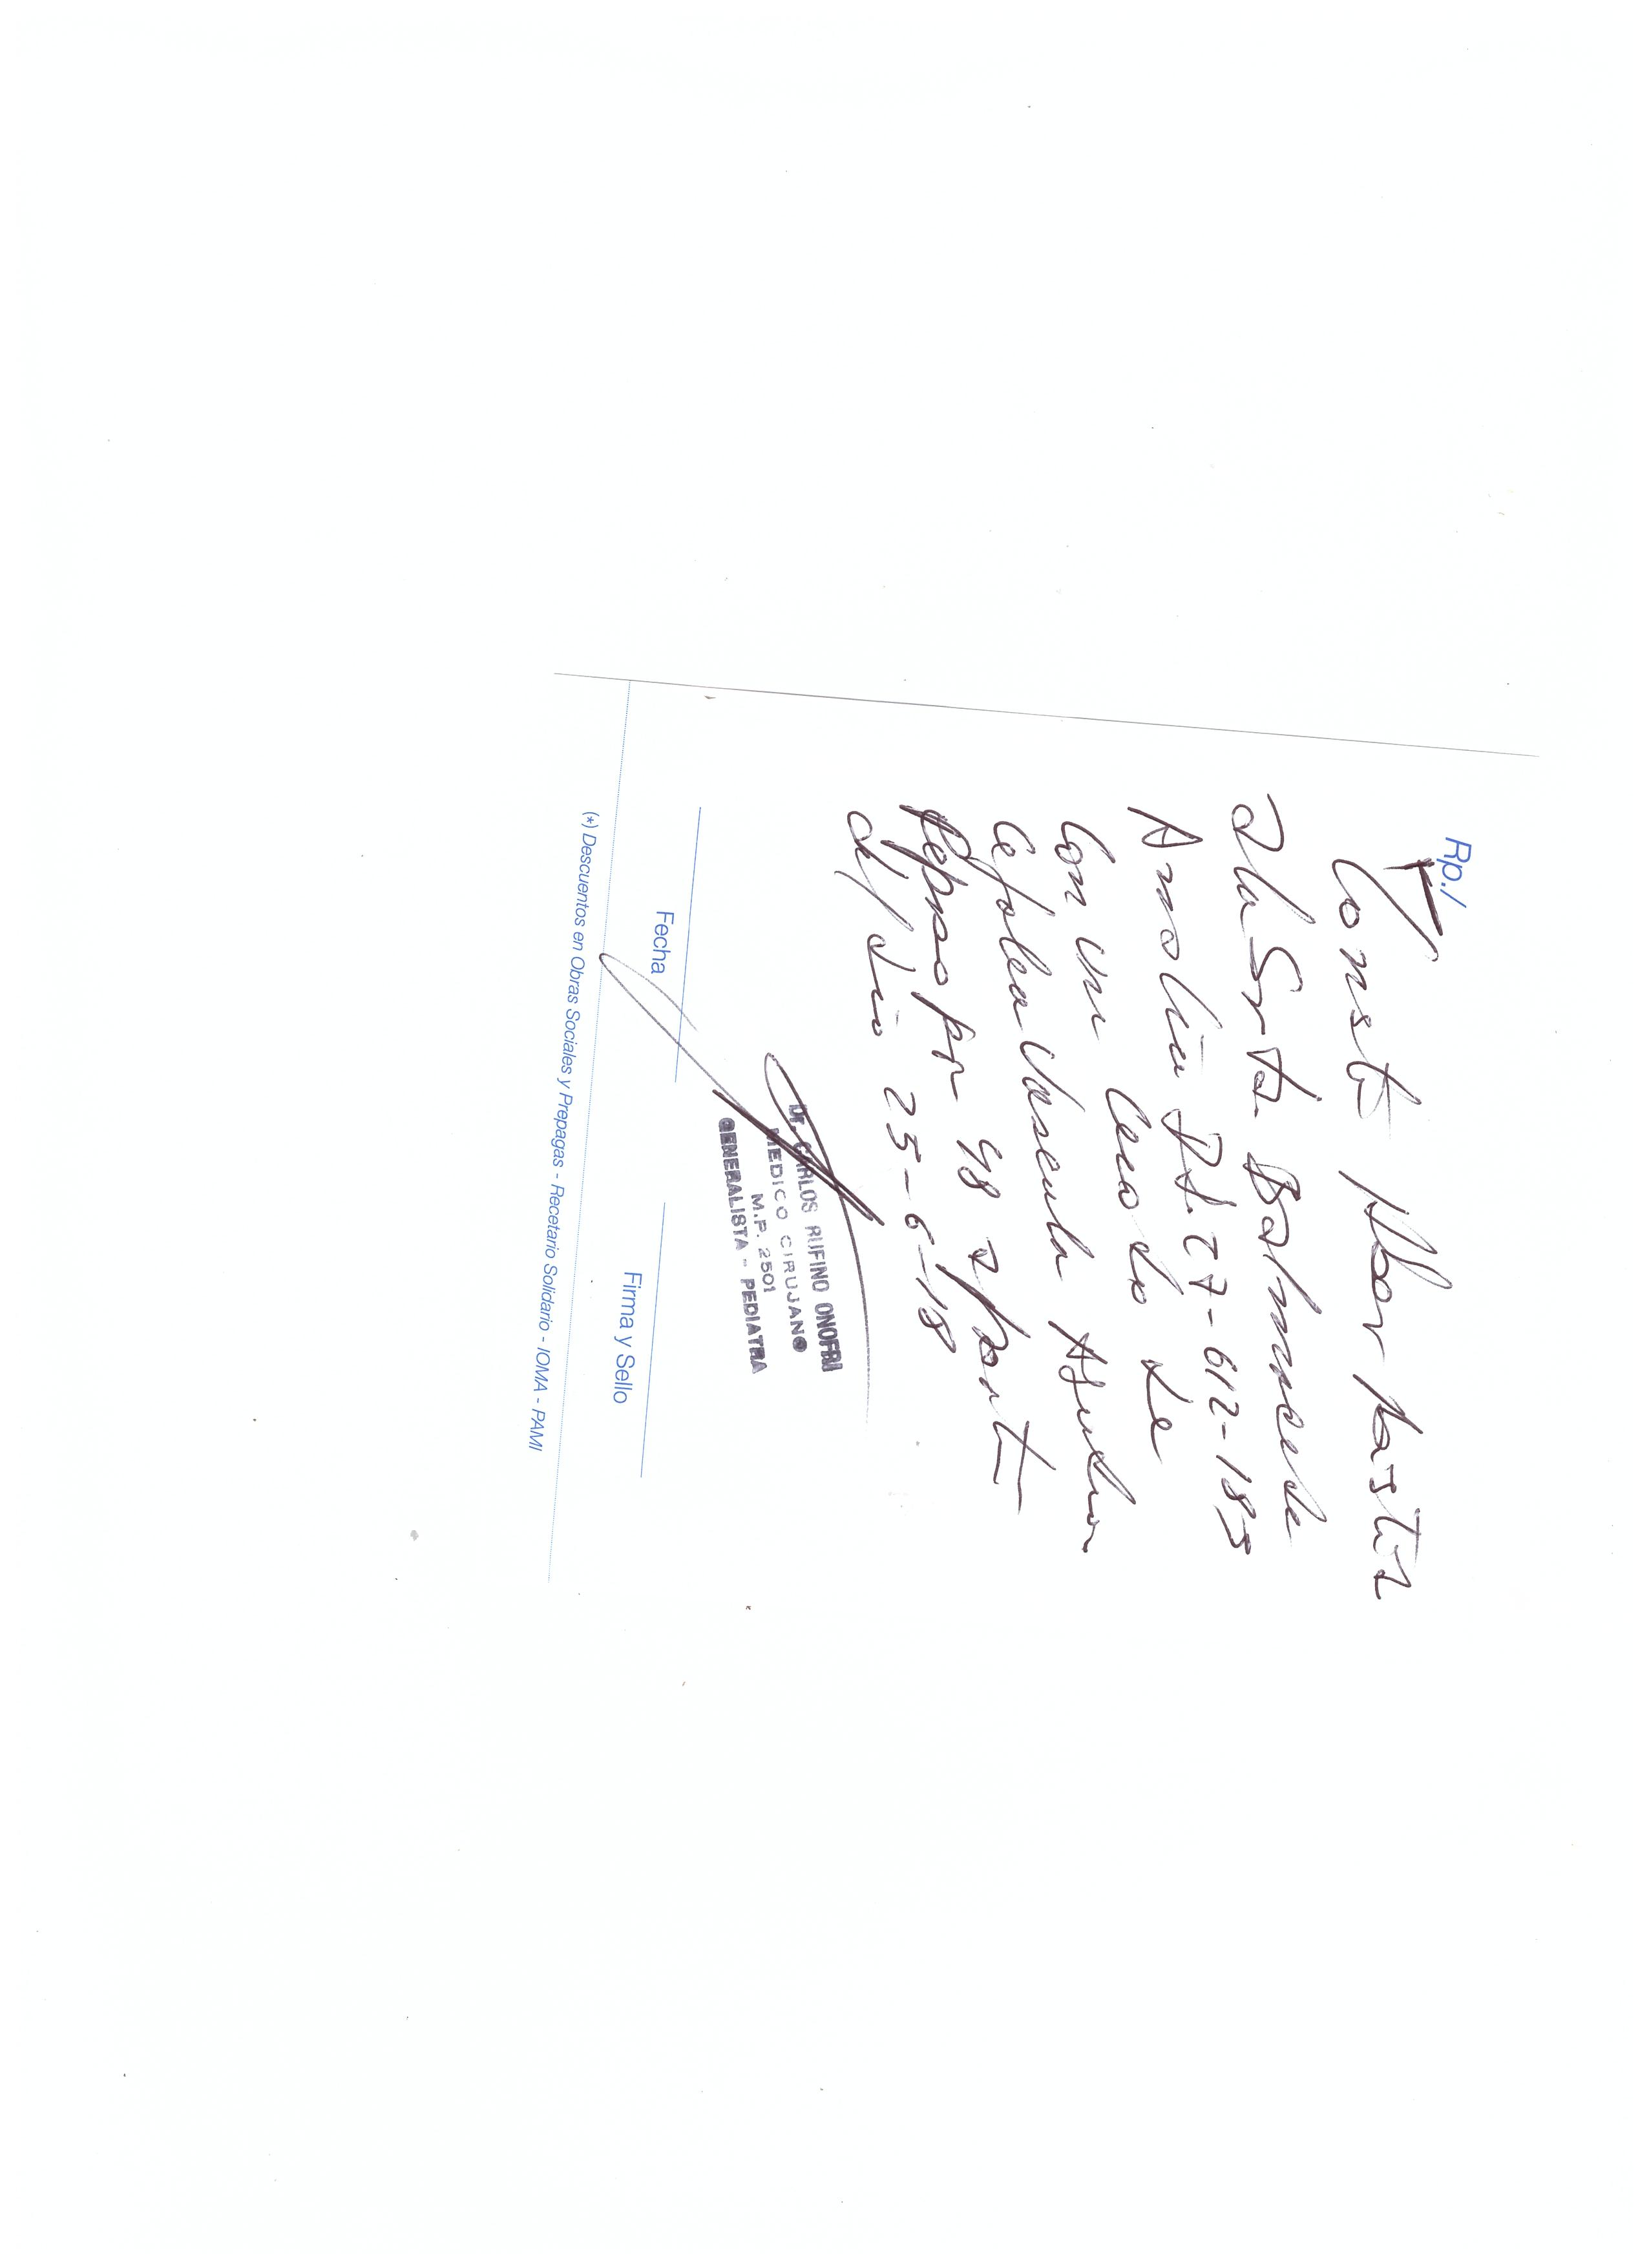 Rp./
Consta Haber
a la Srta. Balmaceda
Amalia
con un Cuadro de
Cefalea Vascular Aguda
Reposo por 48 a part
del dia 25-6-18
Dr. CARLOS RUFINO ONOFRI
MEDICO CIRUJANO
M.P. 2501
GENERALISTA - PEDIATRA
Fecha
Firma y Sello
(*) Descuentos en Obras Sociales y Prepagas - Recetario Solidario - IOMA - PAMI